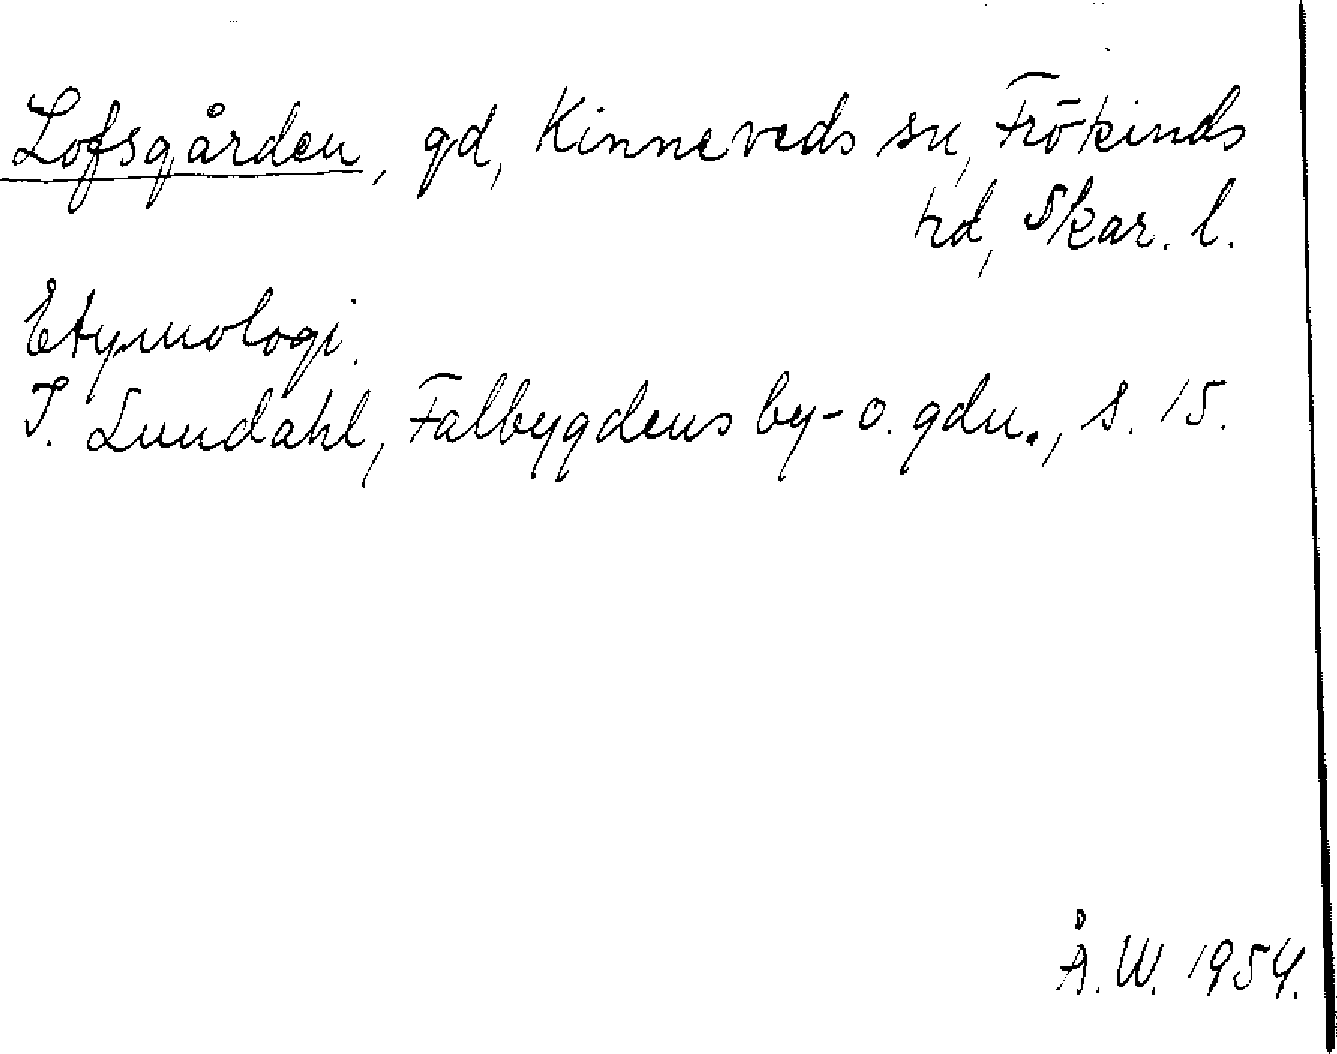 Lofsgården, gd, Kinneveds sn, Frökinds
hd, Skar. l.
Etymologi.
I. Lundahl, Falbygdens by- o. gdn., s. 15.
Å. W. 1954.